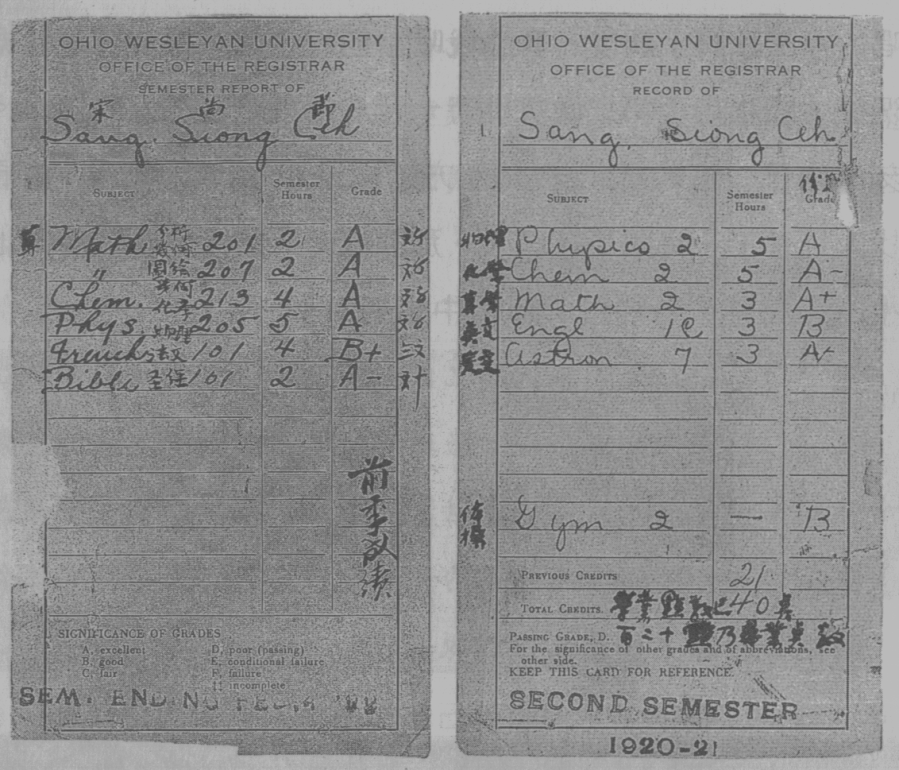 OHIO WESLEYAN UNIVERSITY
OFFICE OF THE REGISTRAR
SEMESTER REPORT OF
宋 尚 節
Sang. Siong Ceh
SUBJECT Semester Hours Grade
Math 201 2 A
" 207 2 A
Chem. 化学 213 4 A
Phys. 物理 205 5 A
French 法文 101 4 B+
Bible 101 2 A-
前季成績
SIGNIFICANCE OF GRADES
A, excellent D, poor (passing)
B, good E, conditional failure
C, fair F, failure
I, incomplete
SEM. ENDING
OHIO WESLEYAN UNIVERSITY
OFFICE OF THE REGISTRAR
RECORD OF
Sang. Siong Ceh
SUBJECT Semester Hours Grade
物理 Physics 2 5 A
化學 Chem 2 5 A-
Math 2 3 A+
英文 Engl 1e 3 B
Astron 7 3
体操 Gym 2 — B
PREVIOUS CREDITS 21
TOTAL CREDITS 40
PASSING GRADE, D.
For the significance of other grades and of abbreviations, see
other side.
KEEP THIS CARD FOR REFERENCE.
SECOND SEMESTER
1920-21